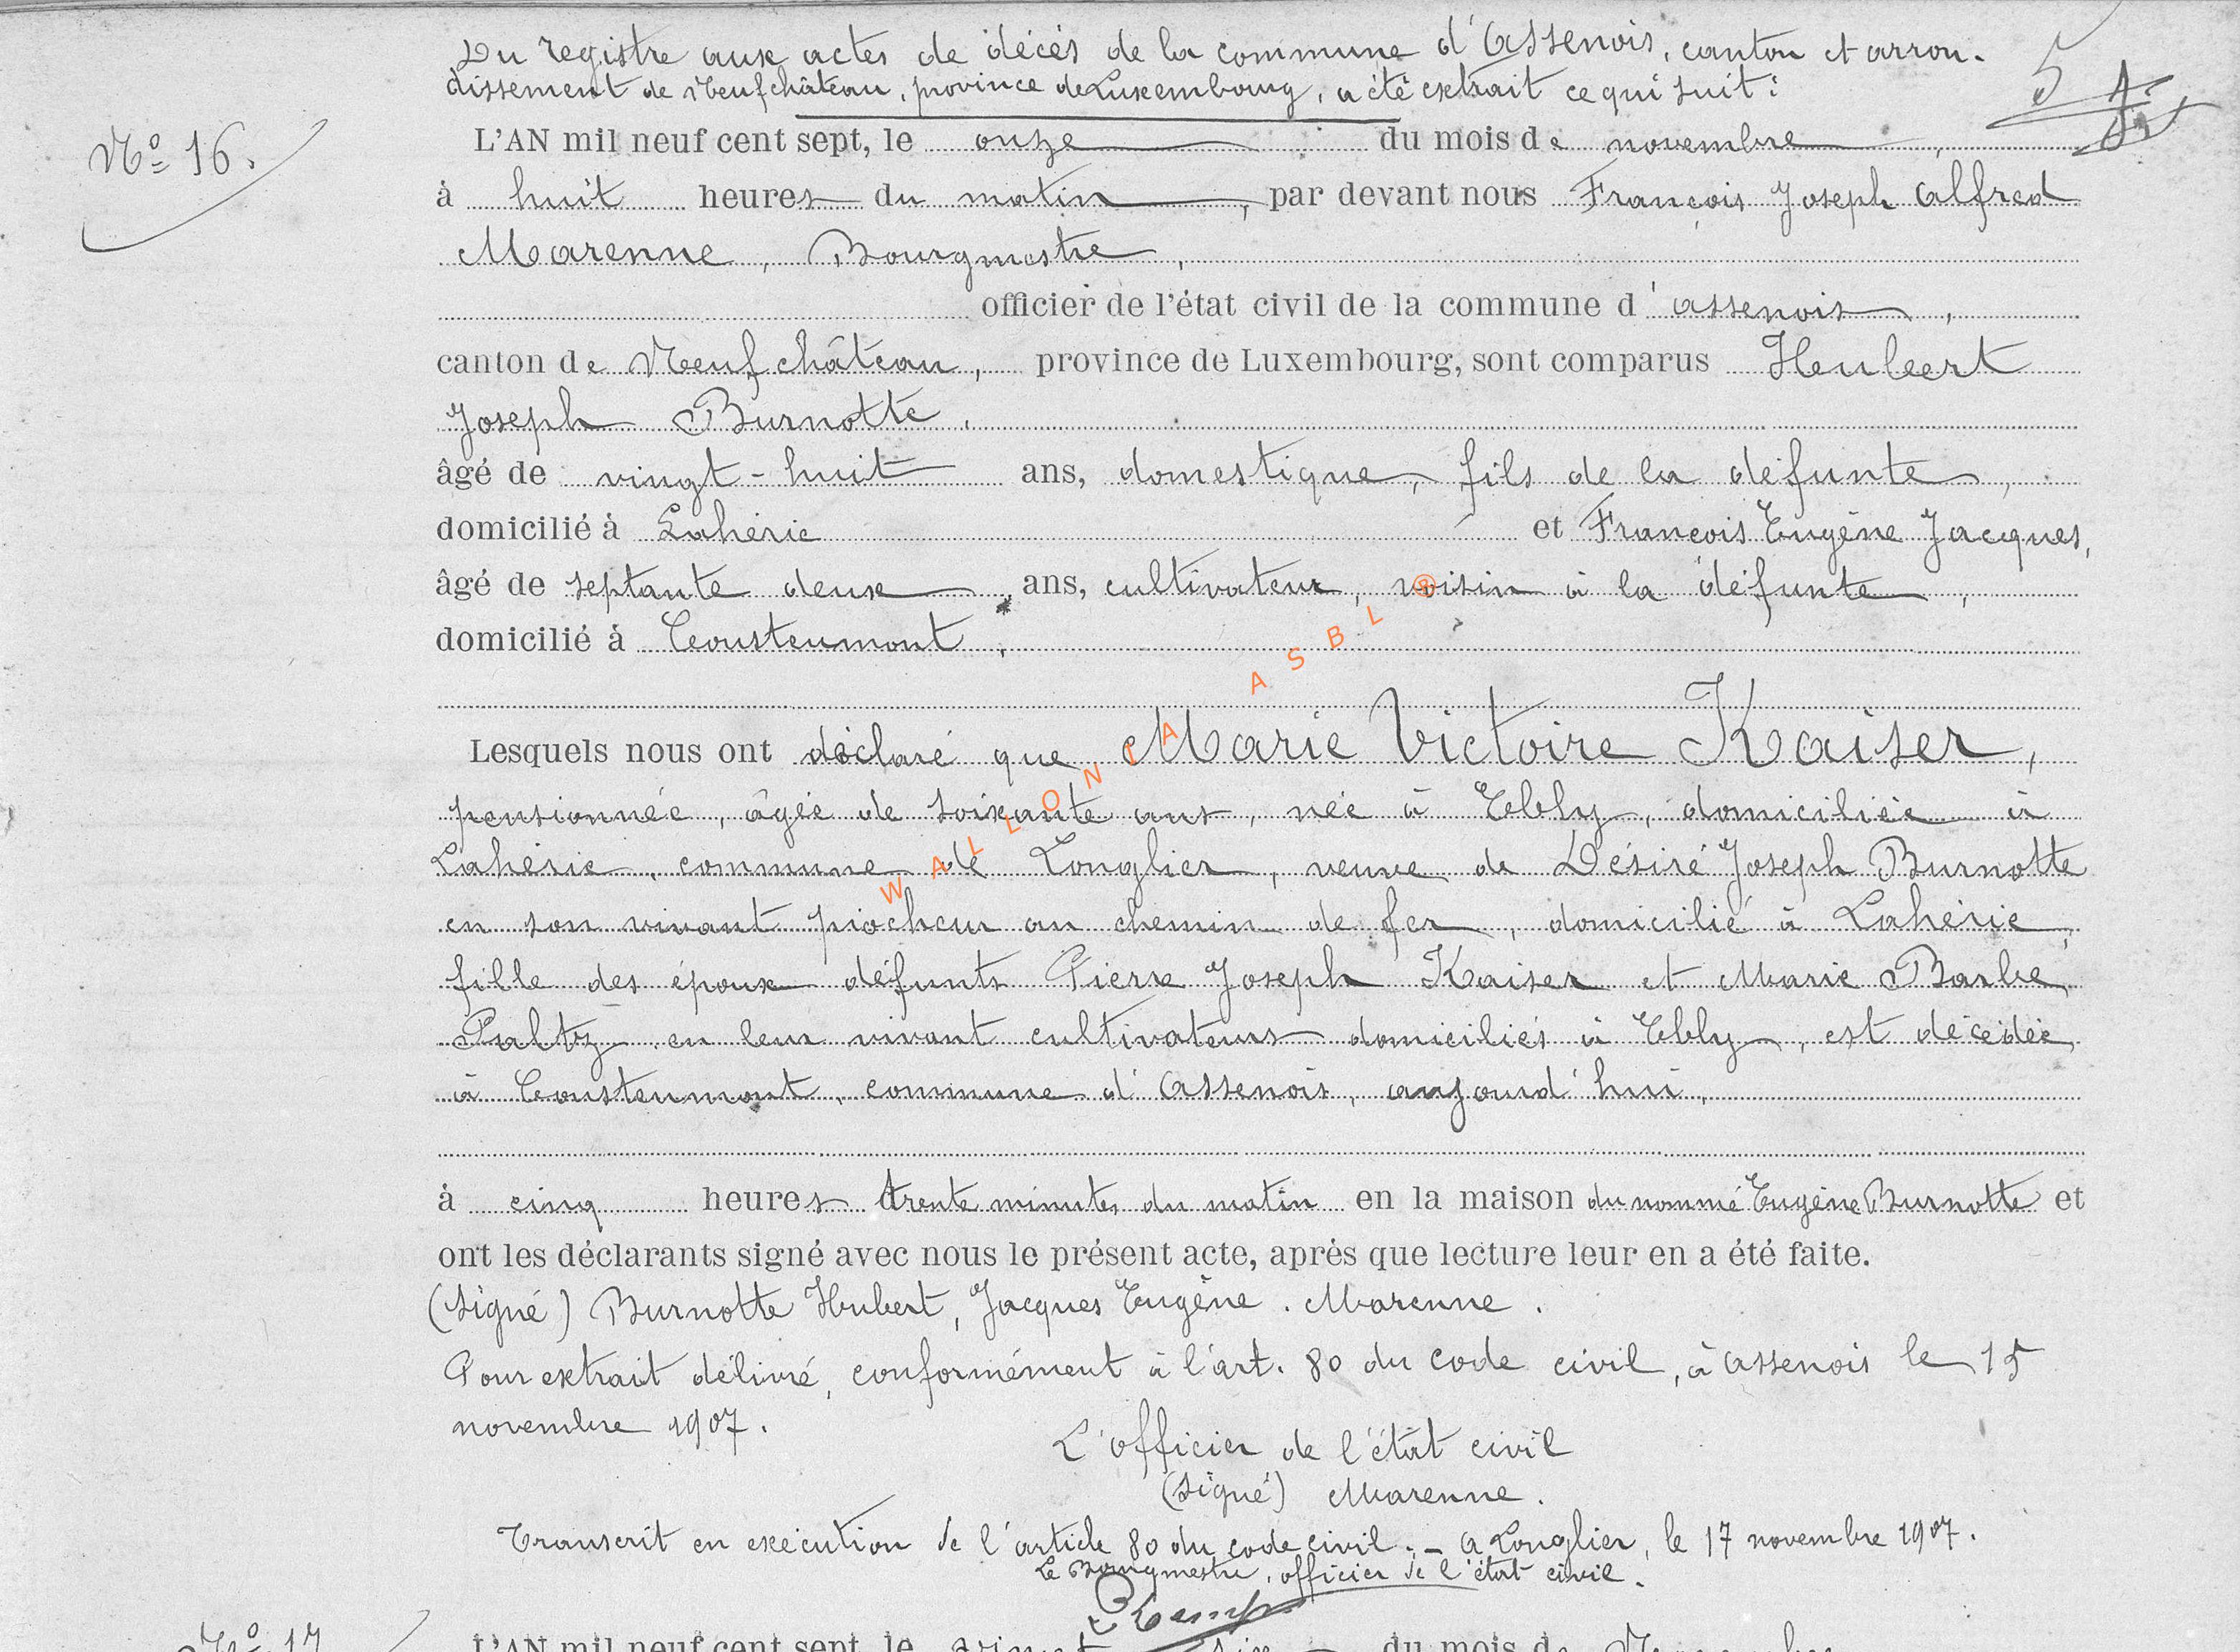 Du registre aux actes de décès de la commune d'Assenois, canton et arron-
dissement de Neufchâteau, province de Luxembourg, a été extrait ce qui suit :
5
Nº 16.
L'AN mil neuf cent sept, le onze du mois de novembre,
à huit heures du matin, par devant nous François Joseph Alfred
Marenne, Bourgmestre,
officier de l'état civil de la commune d'Assenois,
canton de Neufchâteau, province de Luxembourg, sont comparus Heubert
Joseph Burnotte,
âgé de vingt-huit ans, domestique, fils de la défunte,
domicilié à Lahérie et François Eugène Jacques,
âgé de septante deux ans, cultivateur, voisin à la défunte,
domicilié à Cousteumont,
Lesquels nous ont déclaré que Marie Victoire Kaiser,
pensionnée, âgée de soixante ans, née à Ebly, domiciliée à
Lahérie, commune de Longlier, veuve de Désiré Joseph Burnotte
en son vivant piocheur au chemin de fer, domicilié à Lahérie,
fille des époux défunts Pierre Joseph Kaiser et Marie Barbe
Paltz en leur vivant cultivateurs domiciliés à Ebly, est décédée
à Cousteumont, commune d'Assenois, aujourd'hui,
à cinq heures trente minutes du matin en la maison du nommé Eugène Burnotte et
ont les déclarants signé avec nous le présent acte, après que lecture leur en a été faite.
(Signé) Burnotte Hubert, Jacques Eugène. Marenne.
Pour extrait délivré, conformément à l'art. 80 du code civil, à Assenois le 15
novembre 1907.
L'officier de l'état civil
(Signé) Marenne.
Transcrit en exécution de l'article 80 du code civil. - A Longlier, le 17 novembre 1907.
Le Bourgmestre, officier de l'état civil.
Nº 17
L'AN mil neuf cent sept, le vingt six du mois de Novembre
WALLONIA ASBL ®